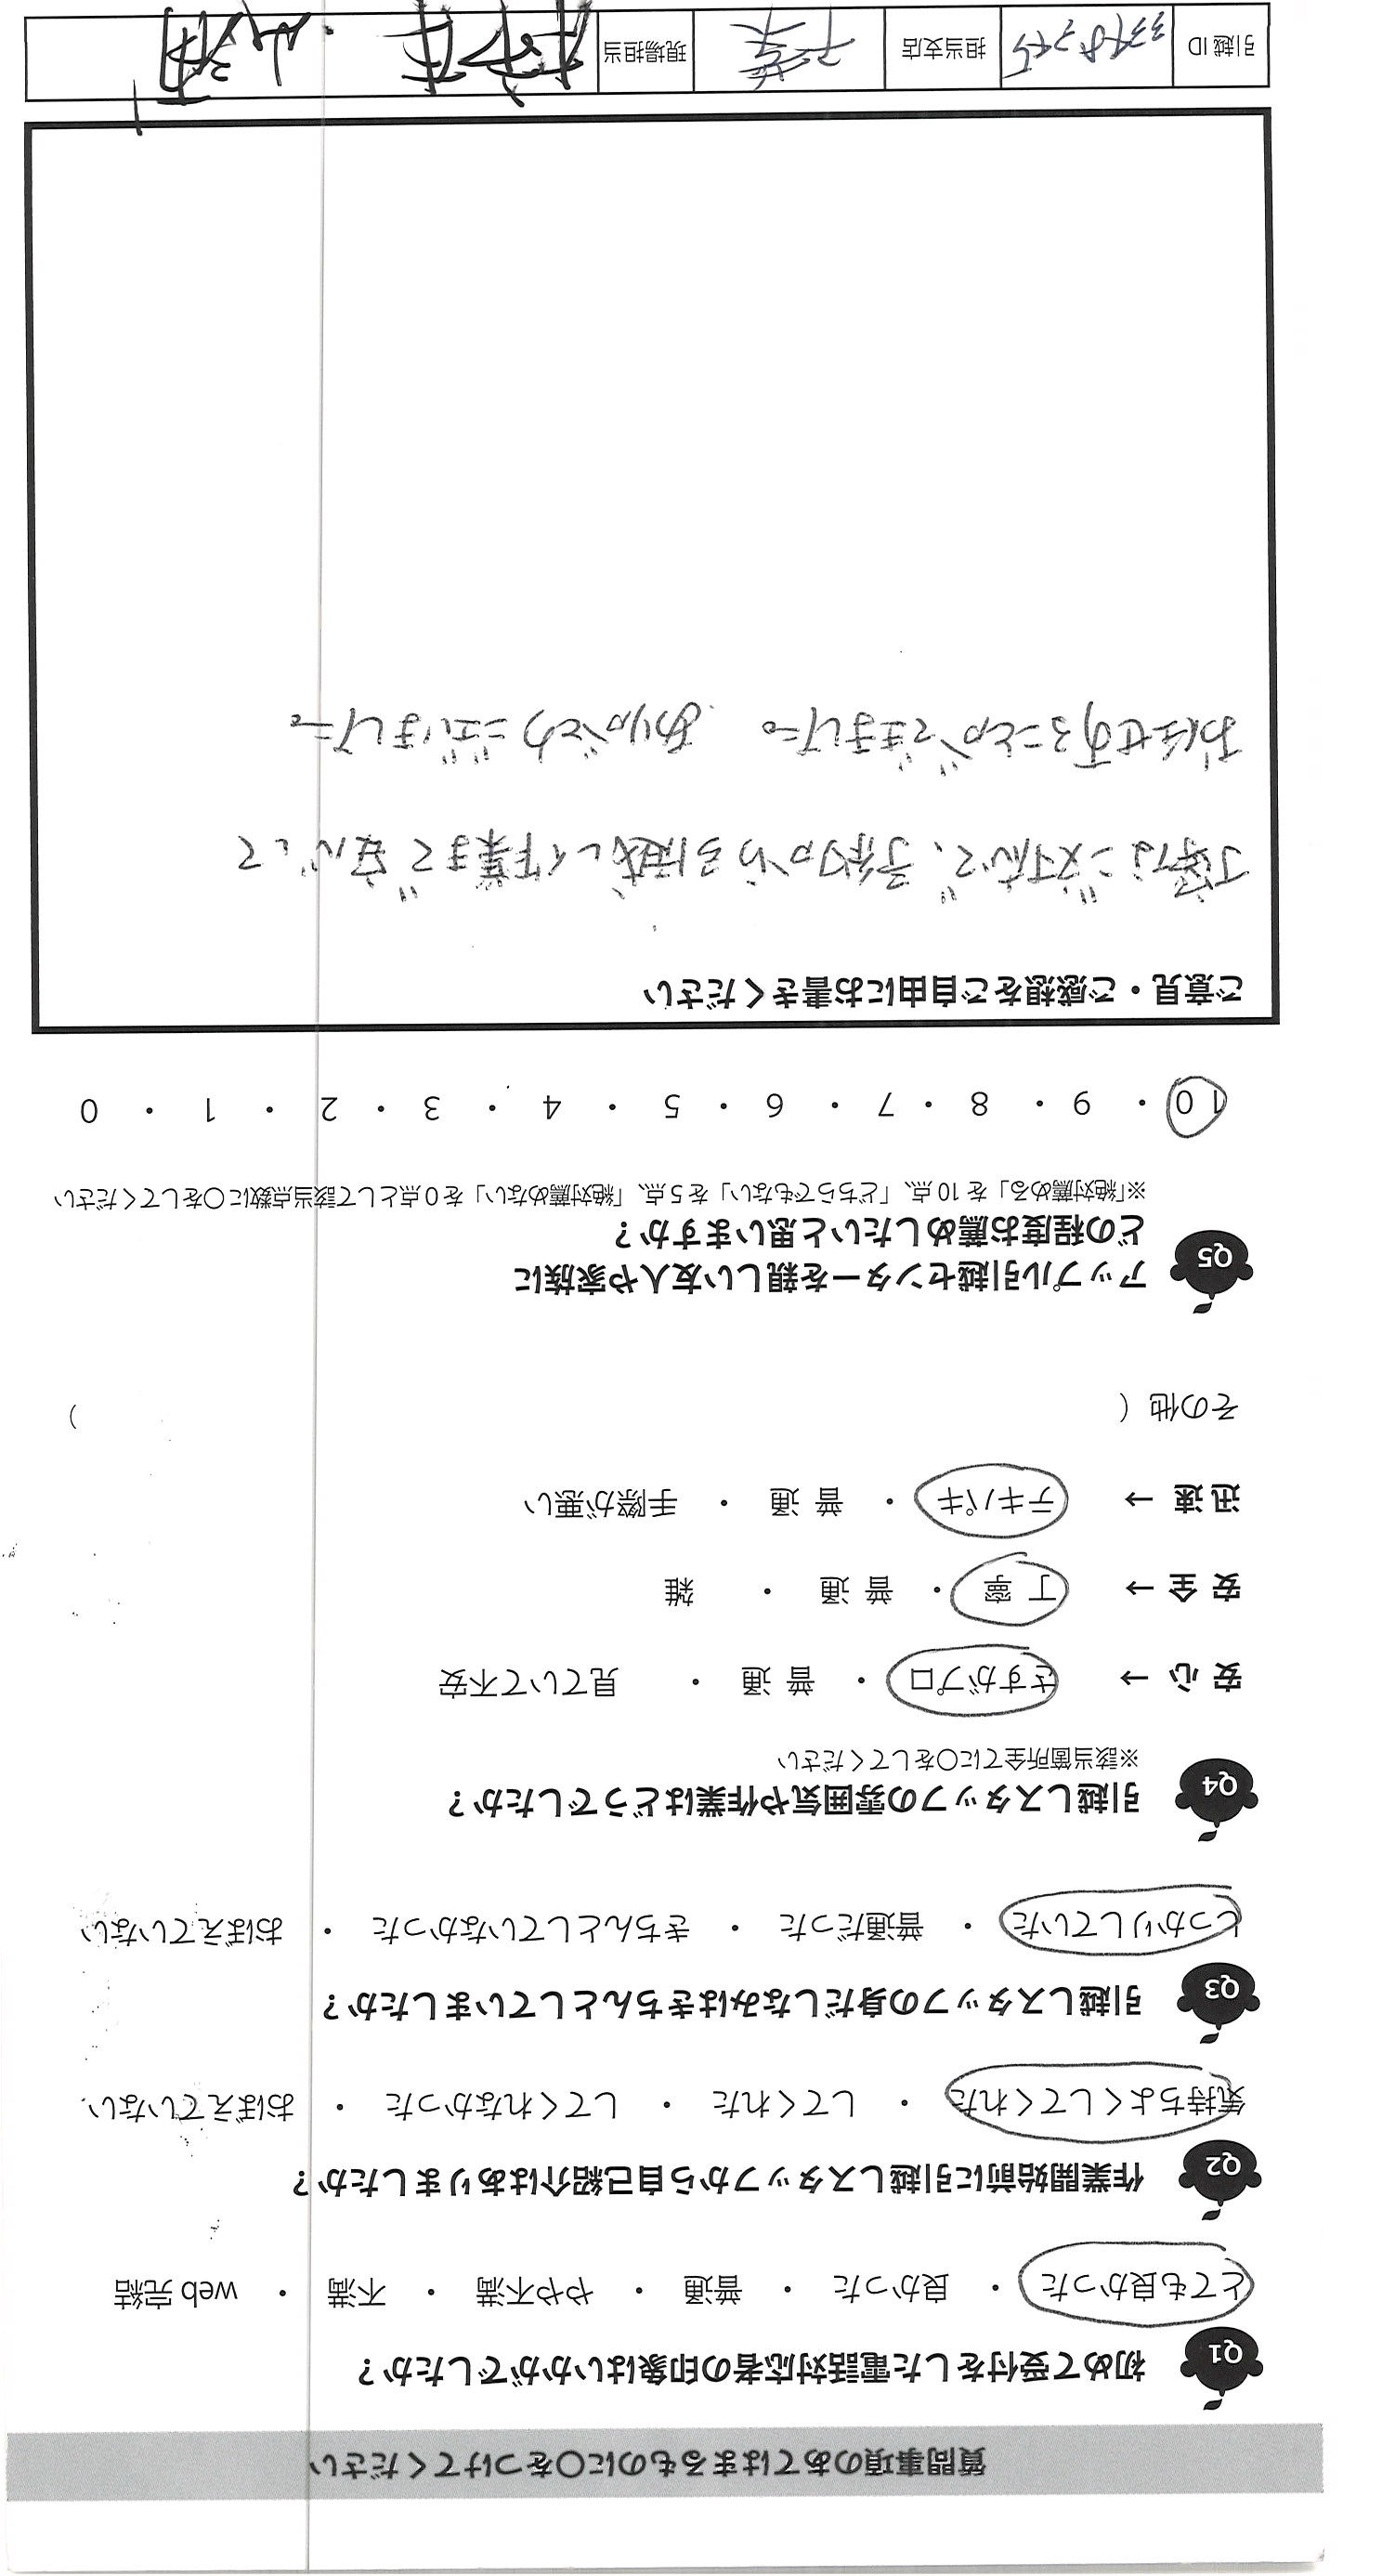 質問事項のあてはまるものに〇をつけてください
Q1 初めて受付をした電話対応者の印象はいかがでしたか？
とても良かった ・ 良かった ・ 普通 ・ やや不満 ・ 不満 ・ web 完結
Q2 作業開始前に引越しスタッフから自己紹介はありましたか？
気持ちよくしてくれた ・ してくれた ・ してくれなかった ・ おぼえていない
Q3 引越しスタッフの身だしなみはきちんとしていましたか？
しっかりしていた ・ 普通だった ・ きちんとしていなかった ・ おぼえていない
Q4 引越しスタッフの雰囲気や作業はどうでしたか？
※該当箇所全てに〇をしてください
安 心 → さすがプロ ・ 普 通 ・ 見ていて不安
安 全 → 丁 寧 ・ 普 通 ・ 雑
迅 速 → テキパキ ・ 普 通 ・ 手際が悪い
その他（ ）
Q5 アップル引越センターを親しい友人や家族に
どの程度お薦めしたいと思いますか？
※「絶対薦める」を 10 点、「どちらでもない」を 5 点、「絶対薦めない」を 0 点として該当点数に〇をしてください
10 ・ 9 ・ 8 ・ 7 ・ 6 ・ 5 ・ 4 ・ 3 ・ 2 ・ 1 ・ 0
ご意見・ご感想をご自由にお書きください
丁寧なご対応で、予約から引越し作業まで安心して
お任せすることができました。ありがとうございました。
引越 ID 担当支店 千葉 現場担当